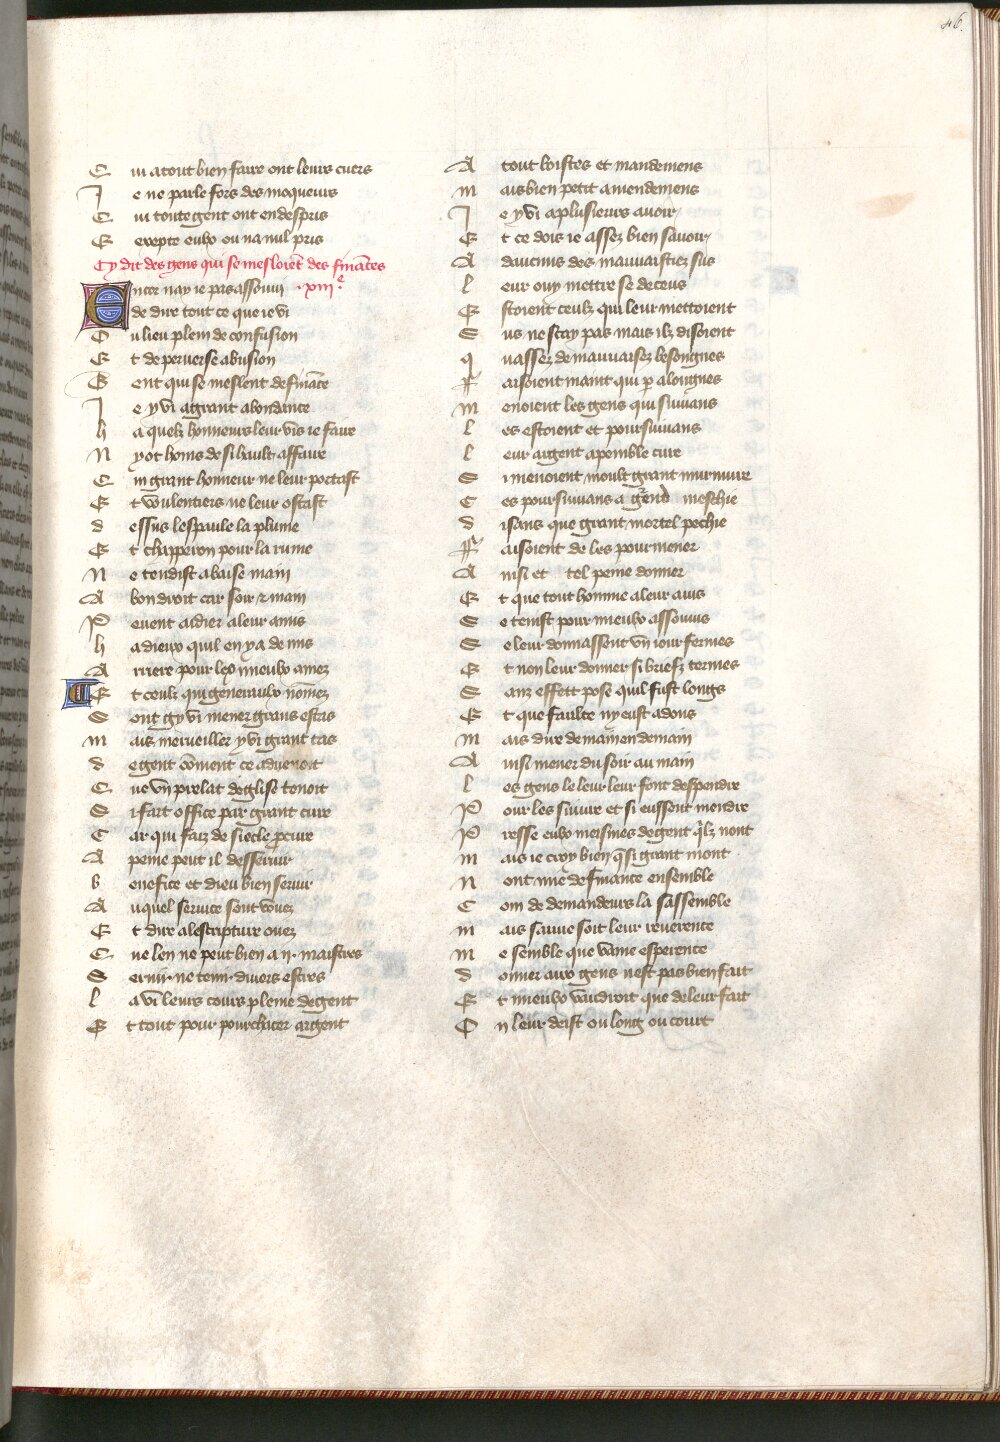 46.
Qui a tout bien faire ont leurs cuers
Je ne parle fors des mocqueurs
Qui toute gent ont en despris
Excepte eulx ou na nul pris
Cy dit des gens qui se mesloiēt des fināces
.xiii.e
Encor nay ie pas assouui
de dire tout ce que ie vi
Ou lieu plein de confusion
Et de peruerse abusion
Gent qui se meslent de fināce
Je y vi a grant abondance
ha quelz honneurs leur vis ie faire
Ny ot homs de si hault affaire
Qui grant honneur ne leur portast
Et voulentiers ne leur ostast
dessus lespaule la plume
Et chapperon pour la rume
Ne tendist a baise main
A bon droit car soir & main
Peuent aidier a leur amis
ha dieux quil en y a de mis
Arriere pour les mieulx amez
Et ceulx qui generaulx nōmez
Sont gy vi mener grans estas
mais merueillez y vi grant tas
degent cōment ce aduenoit
Que vn prelat deglise tenoit
Si fait office par grant cure
Car qui faiz de siecle p̄cure
A peine peut il desseruir
benefice et dieu bien seruir
Auquel seruice sont vouez
Et dire a lescripture ouez
Que len ne peut bien a .ii. maistres
Seruir ne tenir diuers estres
la vi leurs cours pleine degent
Et tout pour pourchacer argent
A tout loistes et mandemens
mais bien petit amendemens
Je y vi a plusieurs auoir
Et ce dois ie assez bien sauoir
Daucuns des mauuaistiez sus
leur ouy mettre se deceus
Estoient ceulx qui leur mettoient
Sus ne scay pas mais ilz disoient
quassez de mauuaisez besongnes
Faisoient maint qui p̱ aloingnes
menoient les gens qui suiuans
les estoient et poursuiuans
leur argent a penible cure
Si menoient moult grant murmure
Ces poursuiuans a grend meschie
disans que grant mortel pechie
Faisoient de les pourmener
Ainsi et tel peine donner
Et que tout homme a leur auis
Se tenist pour mieulx assouuis
Se leur donnassent vn iour fermes
Et non leur donner si briefz termes
Sanz effett pose quil fust longs
Et que faulte ny eust adons
mais dire de main en demain
Ainsi mener du soir au main
les gens le leur leur font despendre
Pour les suiure et si eussent mendre
Presse eulx meismes degent q̄lz nont
mais ie croy bien q̄ si grant mont
nont mie de finance ensemble
Com de demandeurs la sassemble
mais sauue soit leur reuerence
me semble que vaine esperence
donner aux gens nest pas bien fait
Et mieulx vauldroit que de leur fait
On leur deist ou long ou court